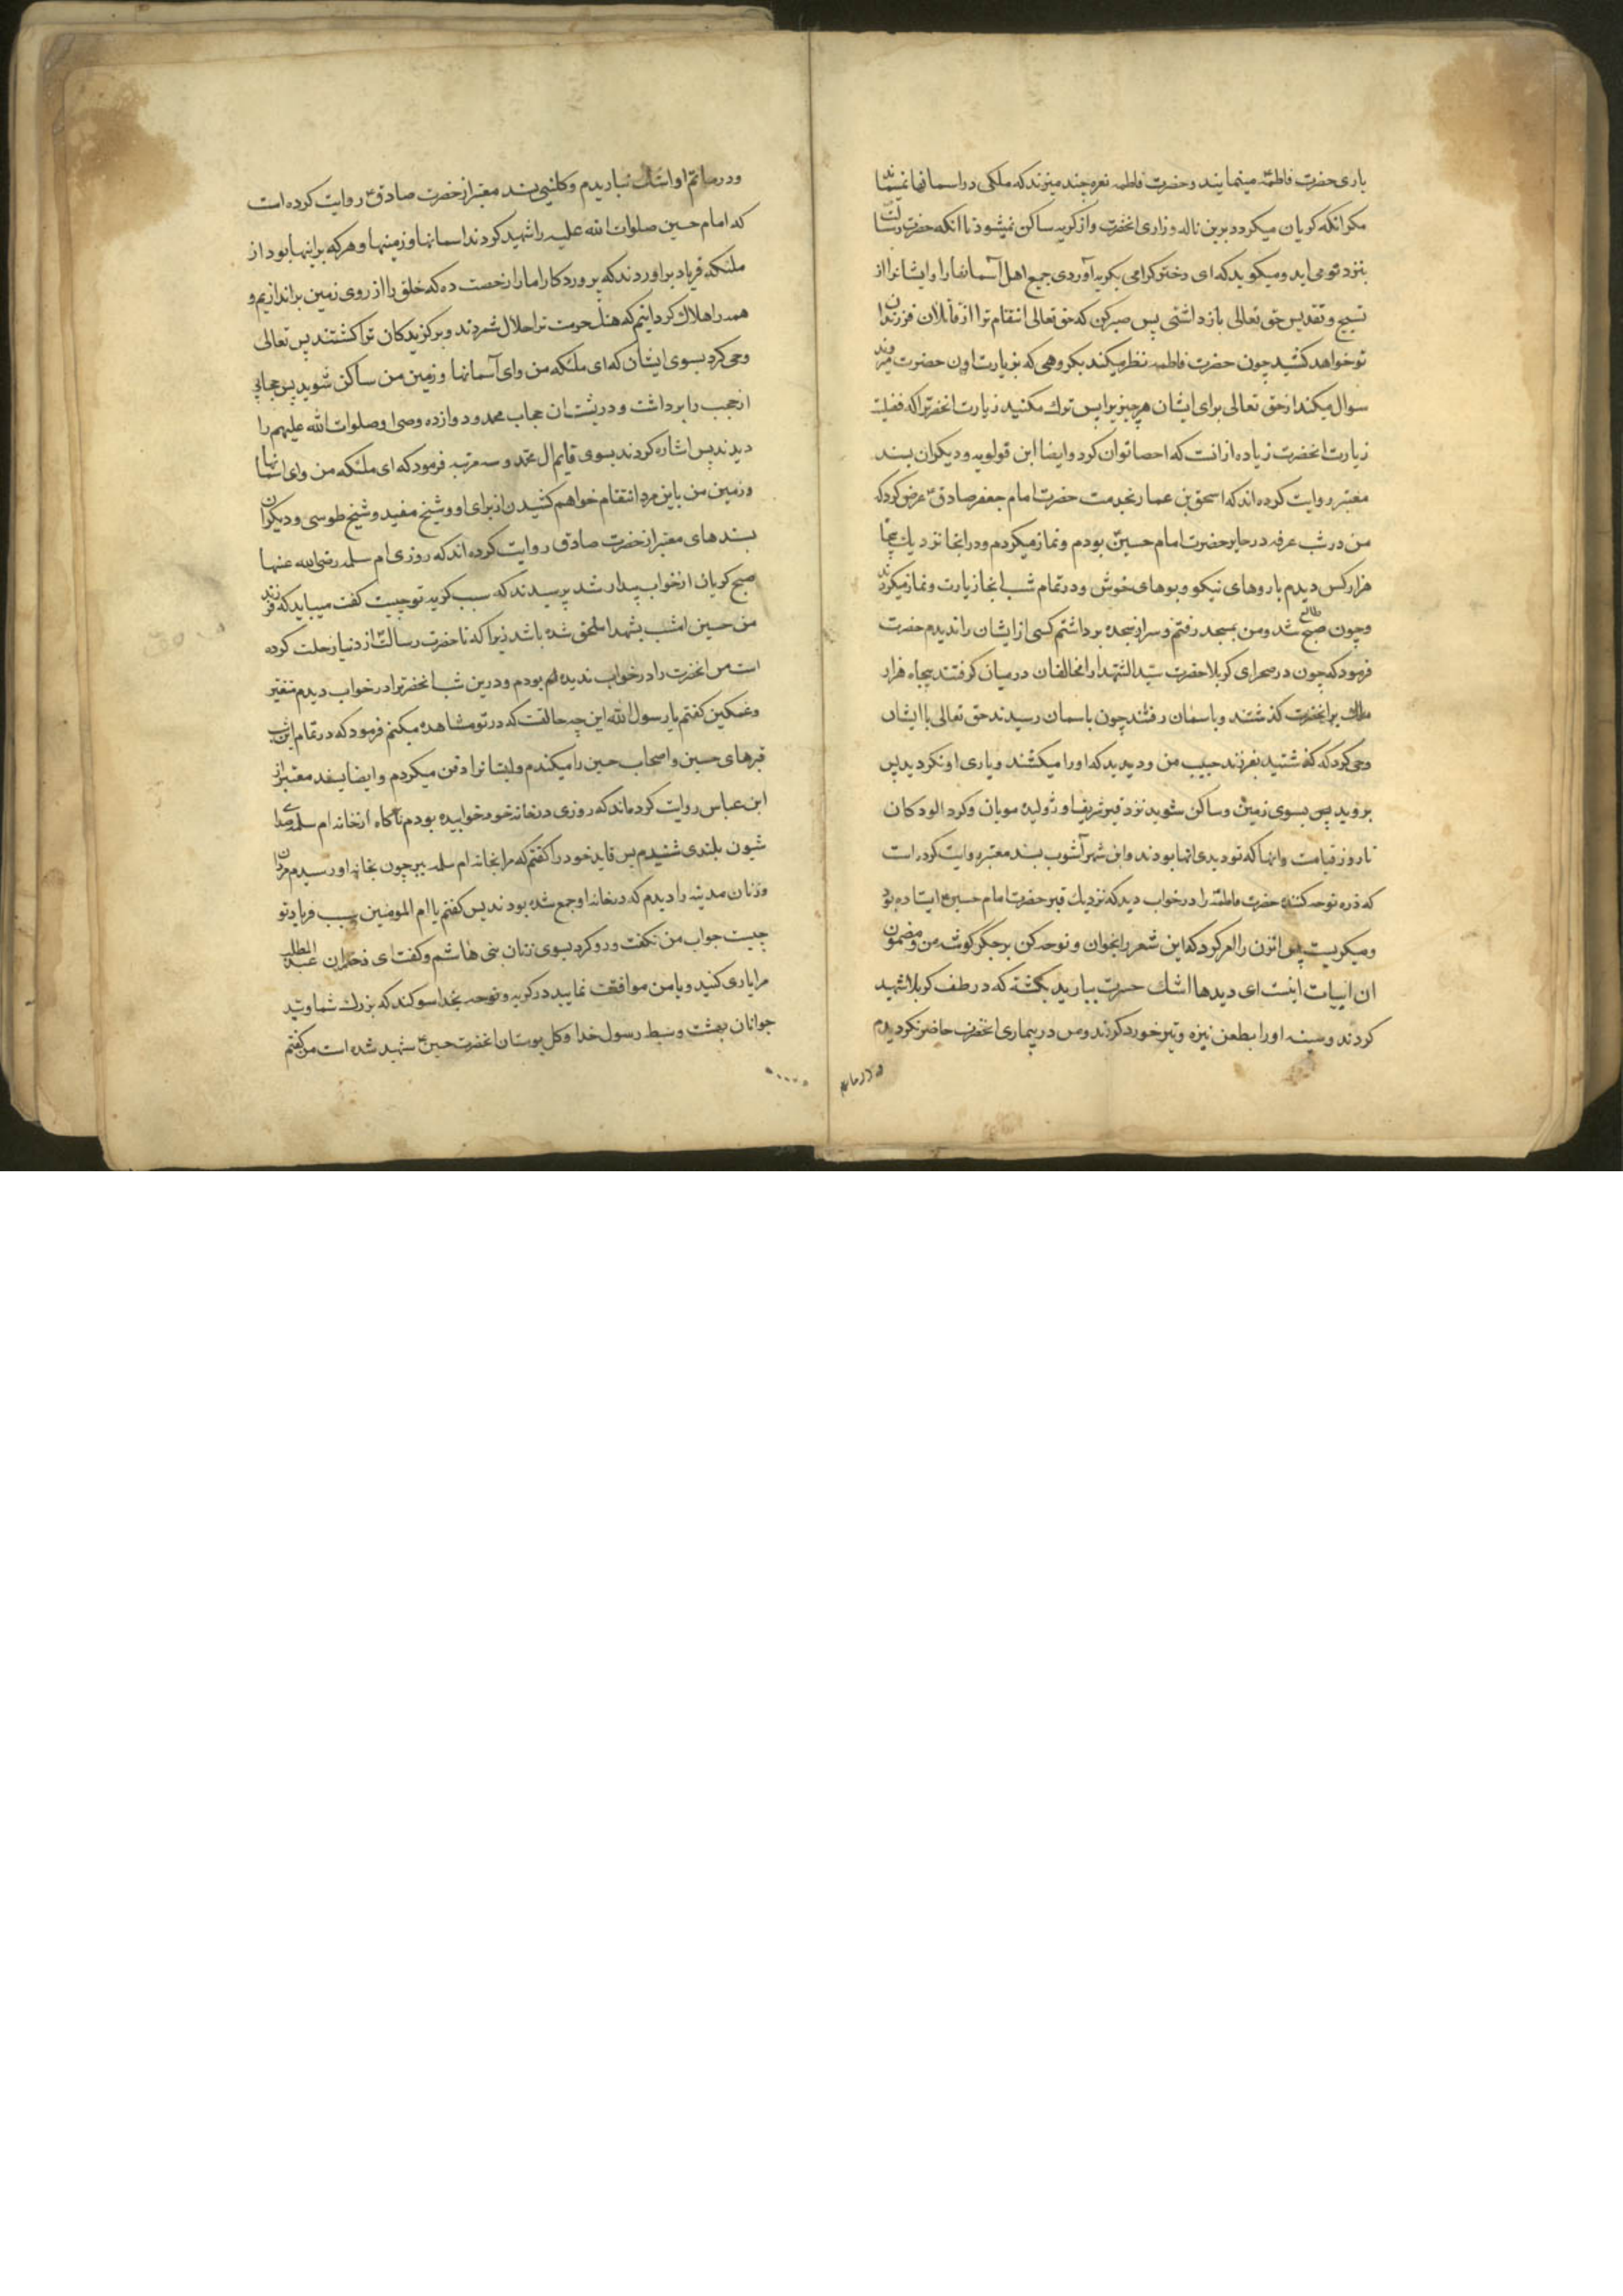 یاری حضرت فاطمهٔ مینمایند و حضرت فاطمه نعره چند میزند که ملکی در اسمانها نمیماند
مکر انکه کریان میکردد برین ناله و زاری انحضرت و از کریه ساکن نمیشود تا انکه حضرت رسالت
بنزد او می اید و میکوید که ای دختر کرامی بکریه آوردی جمیع اهل آسمانها را و ایشانرا از
تسبیح و تقدیس حق تعالی باز داشتی پس صبر کن که حق تعالی انتقام ترا از قاتلان فرزندان
تو خواهد کشید چون حضرت فاطمه نظر میکند بکروهی که بزیارت اون حضرت میروند
سوال میکند از حق تعالی برای ایشان هر چیز پس ترک مکنید زیارت انحضرترا که فضیلت
زیارت انحضرت زیاده از انت که احصا توان کرد و ایضا ابن قولویه و دیکران بسند
معتبر روایت کرده اند که اسحق بن عمار بخدمت حضرت امام جعفر صادق ع عرض کرد که
من در شب عرفه در حایر حضرت امام حسین بودم و نماز میکردم و در انجا نزدیک پنجاه
هزار کس دیدم با روهای نیکو و بوهای خوش و در تمام شب انجا زیارت و نماز میکردند
و چون صبح طالع شد و من بسجد رفتم و سر از سجده برداشتم کسی از ایشان را ندیدم حضرت
فرمود که چون در صحرای کربلا حضرت سید الشهدا را مخالفان در میان کرفتند پنجاه هزار
ملک بر انحضرت کذشتند و باسمان رفتند چون باسمان رسیدند حق تعالی با ایشان
وحی کرد که کذشتید بفرزند حبیب من و دیدید که او را میکشتند و یاری او نکردید پس
بروید پس بسوی زمین و ساکن شوید نزد قبر شریف او ژولیده مویان و کرد الودکان
تا روز قیامت و انها که تو دیدی انها بودند و ابن شهر آشوب بسند معتبر روایت کرده است
که ذره نوحه کننده حضرت فاطمه را در خواب دید که نزدیک قبر حضرت امام حسین ع ایستاده بود
و میکریست پس انزن را امر کرد که این شعر را بخوان و نوحه کن بر جکر کوشه من و مضمون
ان ابیات اینست ای دیدها اشک حسرت ببارید بکشته که در طف کربلا شهید
کردند و سینه او را بطعن نیزه و تیر خورد کردند و من در بیماری انحضرت حاضر نکردیدم
و در ماتم
و در ماتم او اشک نباریدم و کلینی بسند معتبر از حضرت صادق ع روایت کرده است
که امام حسین صلوات الله علیه را شهید کردند اسمانها و زمینها و هر که بر اینها بود از
ملئکه فریاد براوردند که پروردکارا ما را رخصت ده که خلق را از روی زمین براندازیم و
همه را هلاک کردانیم که هتک حرمت ترا حلال شمردند و برکزیدکان ترا کشتند پس تعالی
وحی کرد بسوی ایشان که ای ملئکه من و ای آسمانها و زمین من ساکن شوید پس حجابی
از حجب را برداشت و در پشت ان حجاب محمد و دوازده وصی او صلوات الله علیهم را
دیدند پس اشاره کردند بسوی قایم ال محمد و سه مرتبه فرمود که ای ملئکه من و ای اسمانها
و زمین من باین مرد انتقام خواهم کشیدن از برای او و شیخ مفید و شیخ طوسی و دیکران
بسندهای معتبر از حضرت صادق روایت کرده اند که روزی ام سلمه رضی الله عنها
صبح کریان از خواب بیدار شد پرسیدند که سبب کریه تو چیست کفت میباید که فرزند
من حسین امشب بشهدا ملحق شده باشد زیرا که تا حضرت رسالت از دنیا رحلت کرده
است من انحضرت را در خواب ندیده بودم و درین شب انحضرترا در خواب دیدم متغیر
و غمکین کفتم یا رسول الله این چه حالتست که در تو مشاهده میکنم فرمود که در تمام این شب
قبرهای حسین و اصحاب حسین را میکندم و ایشانرا دفن میکردم و ایضا بسند معتبر از
ابن عباس روایت کرده اند که روزی در خانه خود خوابیده بودم ناکاه از خانه ام سلمه صدای
شیون بلندی شنیدم پس قاید خود را کفتم که مرا بخانه ام سلمه ببر چون بخانه او رسیدم مردان
و زنان مدینه را دیدم که در خانه او جمع شده بودند پس کفتم یا ام المومنین سبب فریاد تو
چیست جواب من نکفت و رو کرد بسوی زنان بنی هاشم و کفت ای دختران عبد المطلب
مرا یاری کنید و با من موافقت نمایید در کریه و نوحه بخدا سوکند که بزرک شما و سید
جوانان بهشت و سبط رسول خدا و کل بوستان انحضرت حسین ع شهید شده است من کفتم